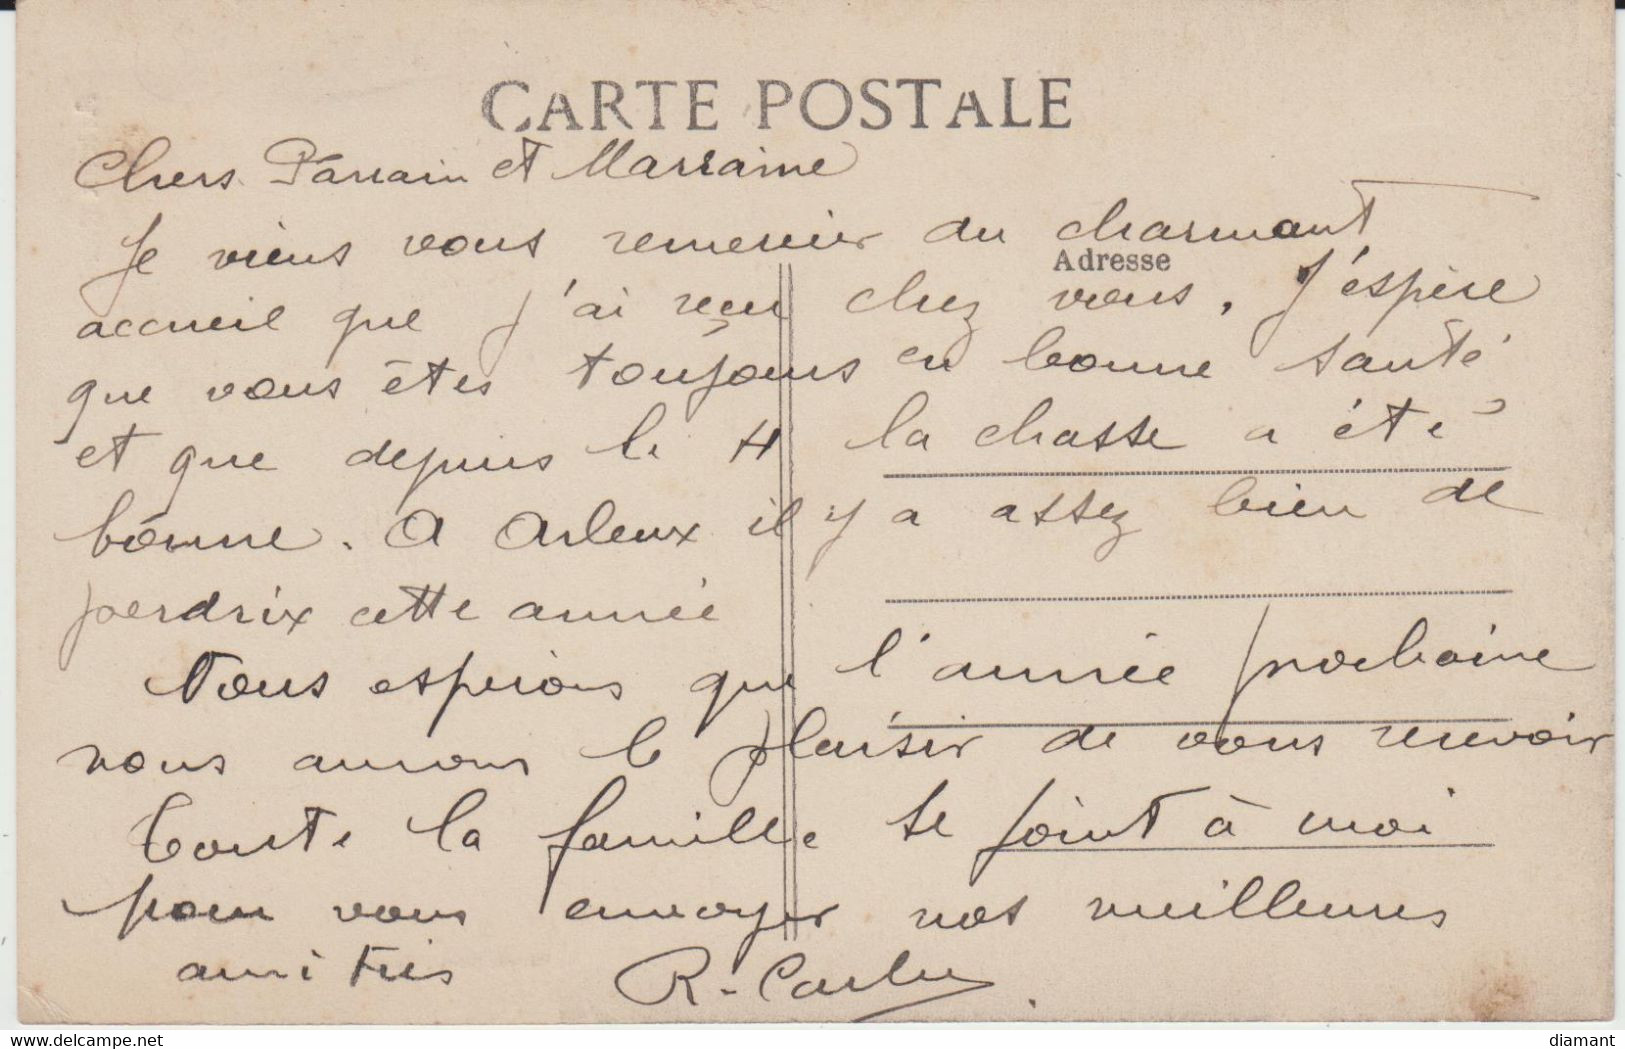 CARTE POSTALE
Chers Parrain et Marraine
Je viens vous remercier du charmant
Adresse
accueil que j'ai reçu chez vous. J'espère
que vous êtes toujours en bonne santé
et que depuis le 4 la chasse a été
bonne. A Arleux il y a assez bien de
perdrix cette année
Nous espérons que l'année prochaine
nous aurons le plaisir de vous recevoir
Toute la famille se joint à moi
pour vous envoyer nos meilleures
amitiés R. Carlu
delcampe.net
diamant